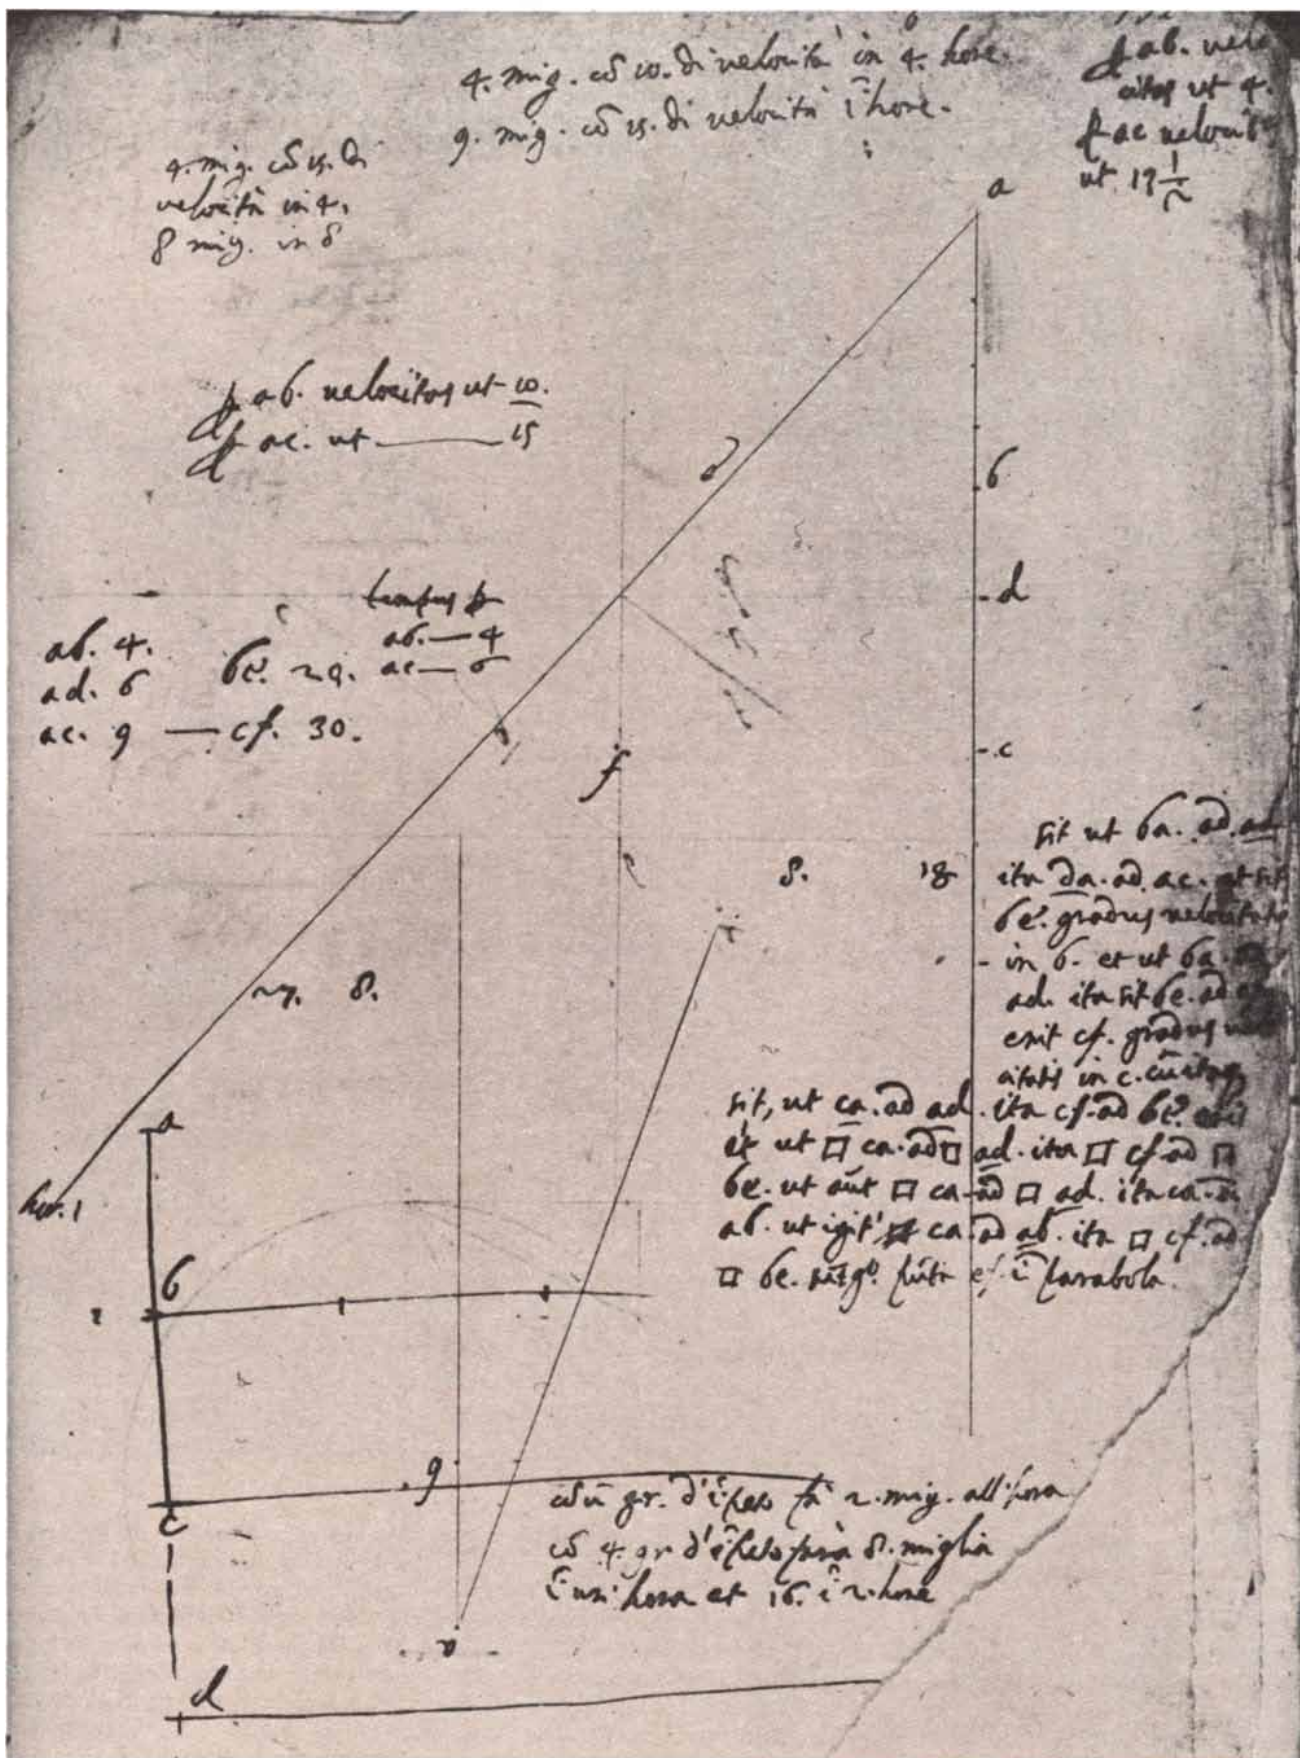 4. mig. cō 10. di velocità in 4. hore.
9. mig. cō 15. di velocità ī hore.
ab. velo
citas ut 4.
ac velocit
ut 19 1/2
4. mig. cō 15. di
velocità in 4.
8 mig. in 8
a
ab. velocitas ut 10.
ac. ut ——— 15
d
b
d
c
ab. 4.
ad. 6
ac. 9 — cf. 30.
be. 20.
tempus p
ab. — 4
ac — 6
f
e
8.
18
27. 8.
sit ut ba. ad. ad
ita da. ad ac. et sit
be. gradus velocitatis
in b. et ut ba.
ad. ita sit be. ad
erit cf. gradus
citatis in c.
sit, ut ca. ad ad. ita cf. ad be.
et ut □ ca. ad □ ad. ita □ cf. ad □
be. ut aūt □ ca. ad □ ad. ita ca. ad
ab. ut igit' ca. ad ab. ita □ cf. ad
□ be. sūt gº. pūta ef. ī parabola.
a
hor. 1
b
g
c
cō ū gr. d'īpeto fa 2. mig. all'hora
cō 4. gr d'īpeto farà 8. miglia
ī un' hora et 16. ī 2. hore
d